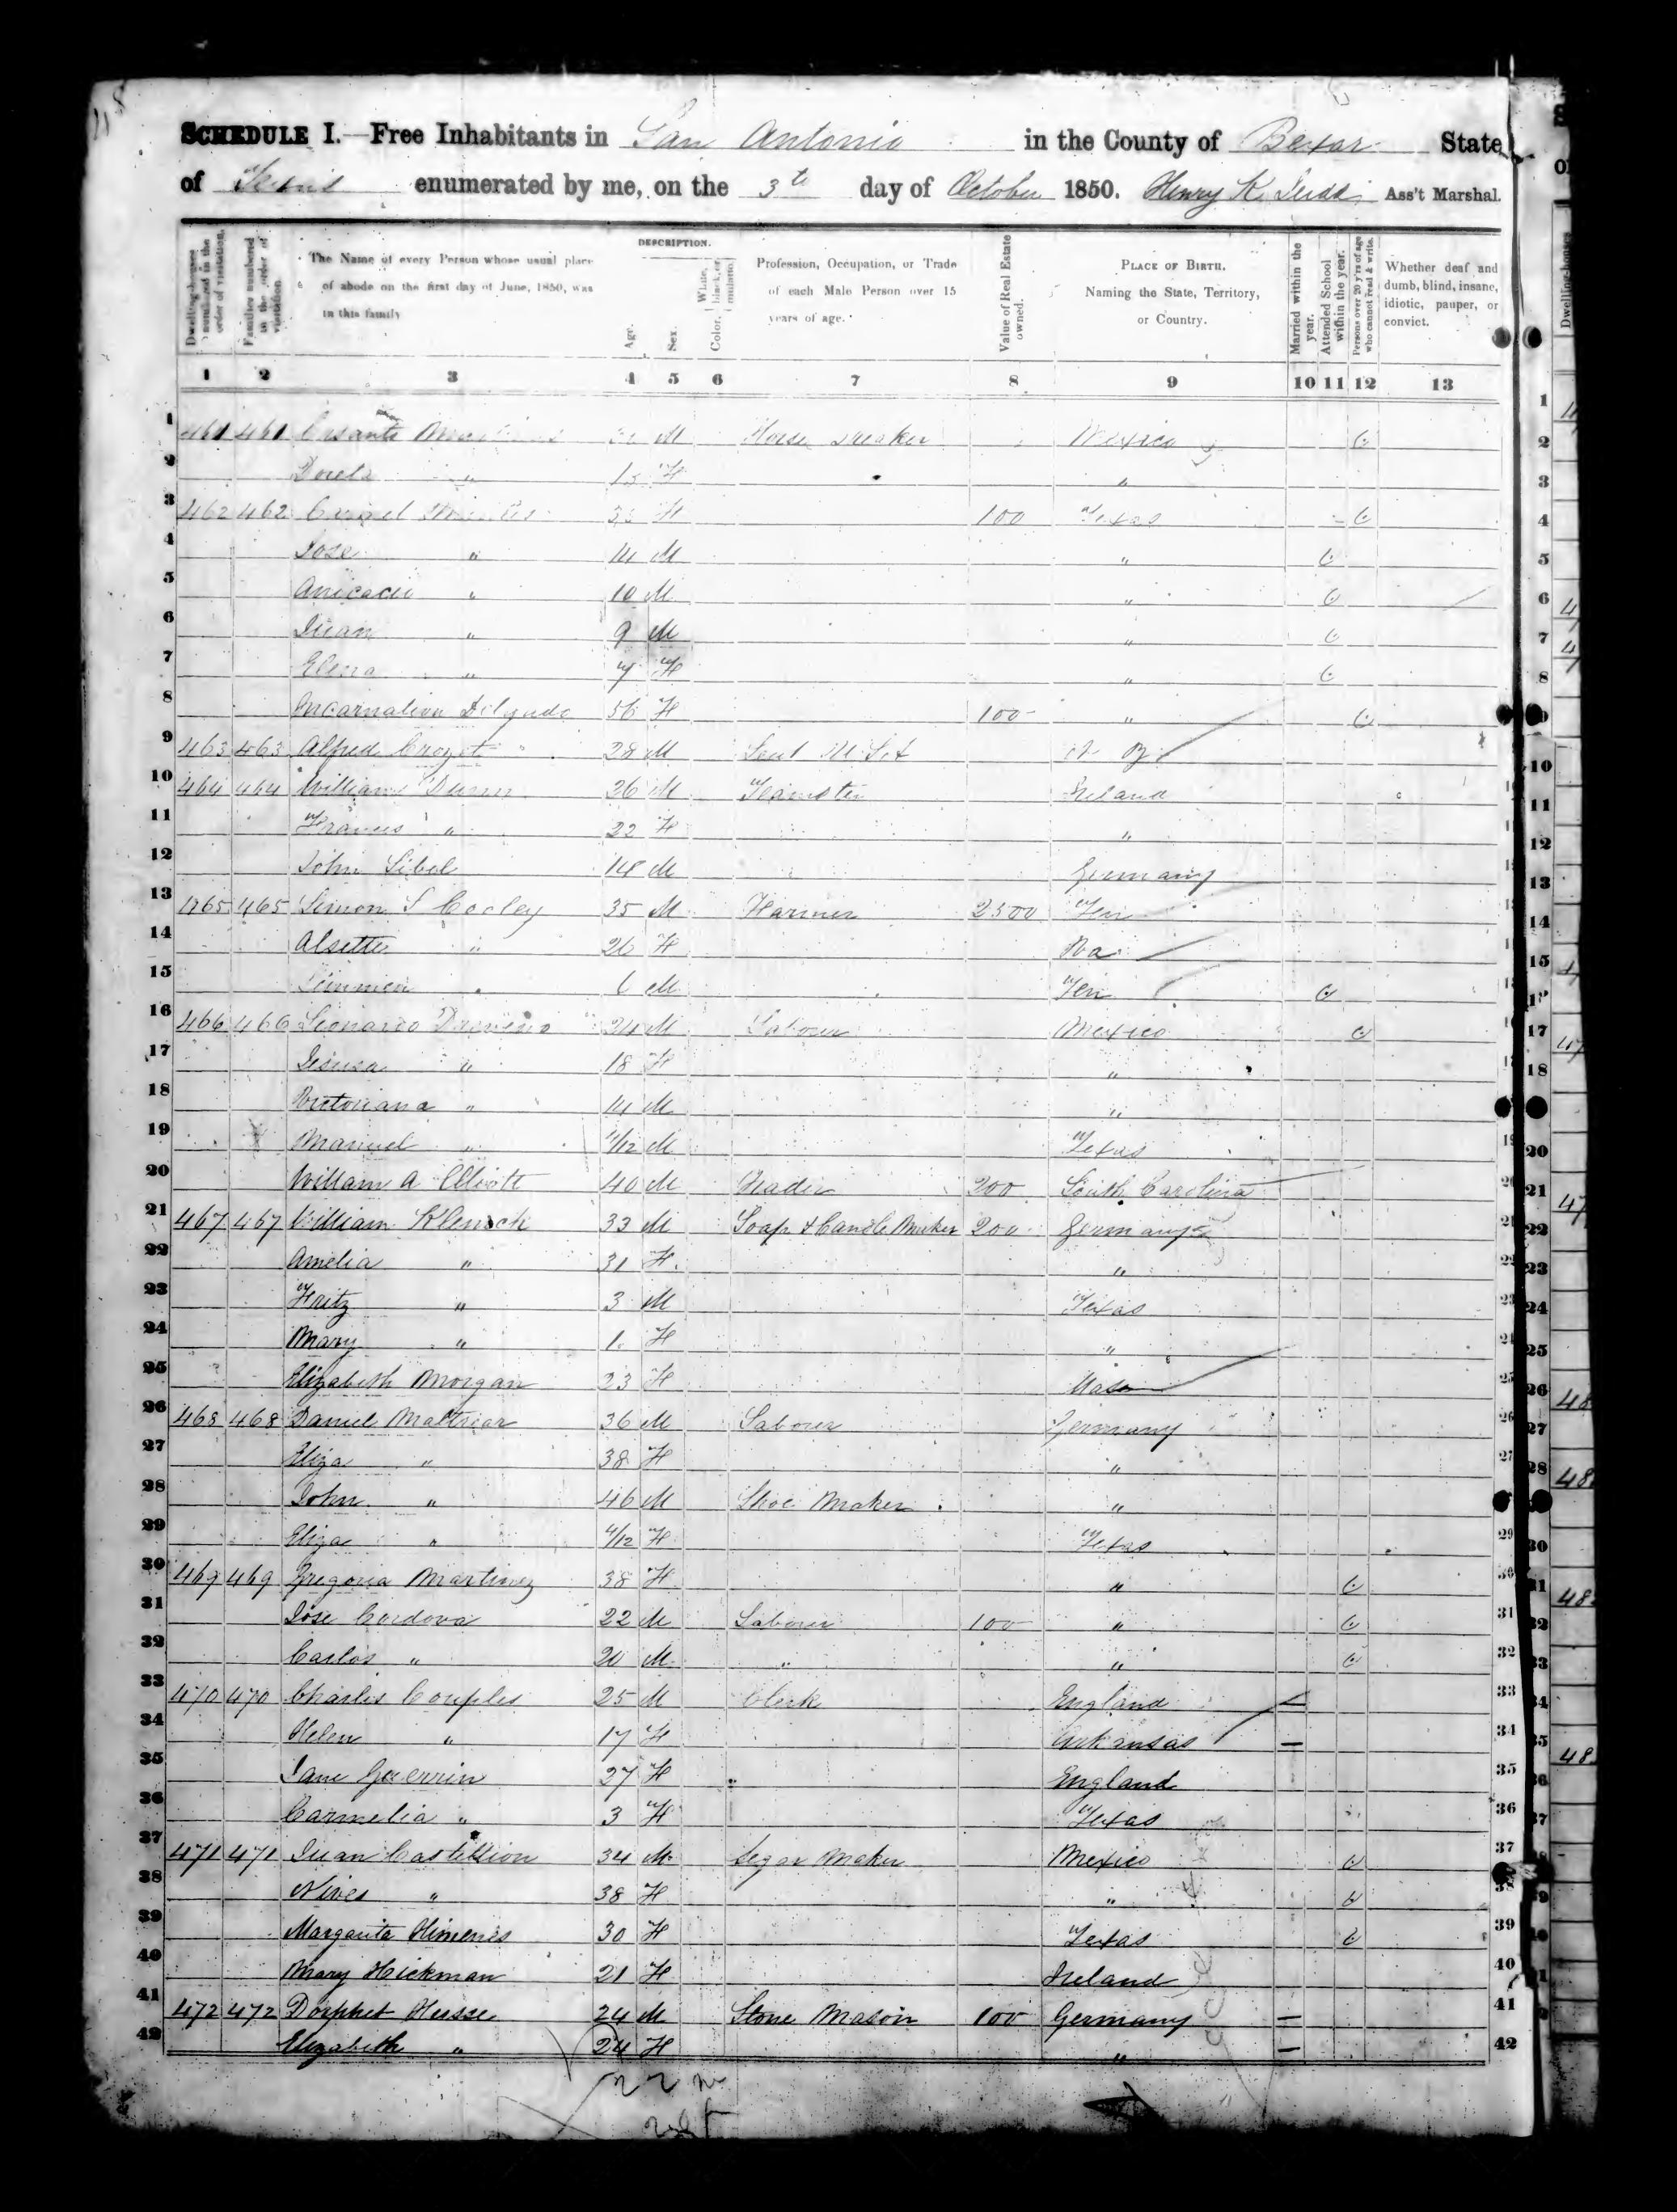 SCHEDULE I.—Free Inhabitants in San Antonio in the County of Bexar State
of Texas enumerated by me, on the 3th day of October 1850. Henry K. Judd Ass't Marshal.
Dwelling-houses numbered in the order of visitation.
Families numbered in the order of visitation.
The Name of every Person whose usual place of abode on the first day of June, 1850, was in this family
DESCRIPTION.
Age.
Sex.
Color. White, black, or mulatto.
Profession, Occupation, or Trade of each Male Person over 15 years of age.
Value of Real Estate owned.
PLACE OF BIRTH. Naming the State, Territory, or Country.
Married within the year.
Attended School within the year.
Persons over 20 y'rs of age who cannot read & write.
Whether deaf and dumb, blind, insane, idiotic, pauper, or convict.
1 2 3 4 5 6 7 8 9 10 11 12 13
1 461 461 M Horse Mexico
2 F "
3 462 462 F 100 Texas
4 Jose " 14 M "
5 " 10 M "
6 Juan " 9 M "
7 Elena " 7 F "
8 Incarnation Delgado 56 F 100 "
9 463 463 Alfred Crozet 28 M N. Y.
10 464 464 William Dunn 26 M Teamster Ireland
11 Frances " 22 F "
12 John Sibel 14 M Germany
13 465 465 Simon S Cooley 35 M Farmer 2500 Ten
14 Alsette " 26 F Va
15 " 6 M Ten
16 466 466 Leonardo 24 M Labourer Mexico
17 Jesusa " 18 F "
18 Victoriana " 14 M "
19 Manuel " /12 M Texas
20 William A Elliott 40 M Trader 200 South Carolina
21 467 467 William Klensch 33 M Soap & Candle Maker 200 Germany
22 Amelia " 31 F "
23 Fritz " 3 M Texas
24 Mary " 1 F "
25 Elizabeth Morgan 23 F
26 468 468 Daniel 36 M Laborer Germany
27 Eliza " 38 F "
28 John " 46 M Shoe Maker "
29 Eliza " 4/12 F Texas
30 469 469 Gregoria Martinez 38 F "
31 Jose Cordova 22 M Laborer 100 "
32 Carlos " 20 M " "
33 470 470 Charles Couples 25 M Clerk England
34 Helen " 17 F Arkansas
35 Jane Guerrin 27 F England
36 Carmelia " 3 F Texas
37 471 471 Juan Castillion 34 M Segar Maker Mexico
38 Nives " 38 F "
39 Margarita Himenes 30 F Texas
40 Mary Hickman 21 F Ireland
41 472 472 Dorphet Heisse 24 M Stone Mason 100 Germany
42 Elizabeth " 24 F "
22 m